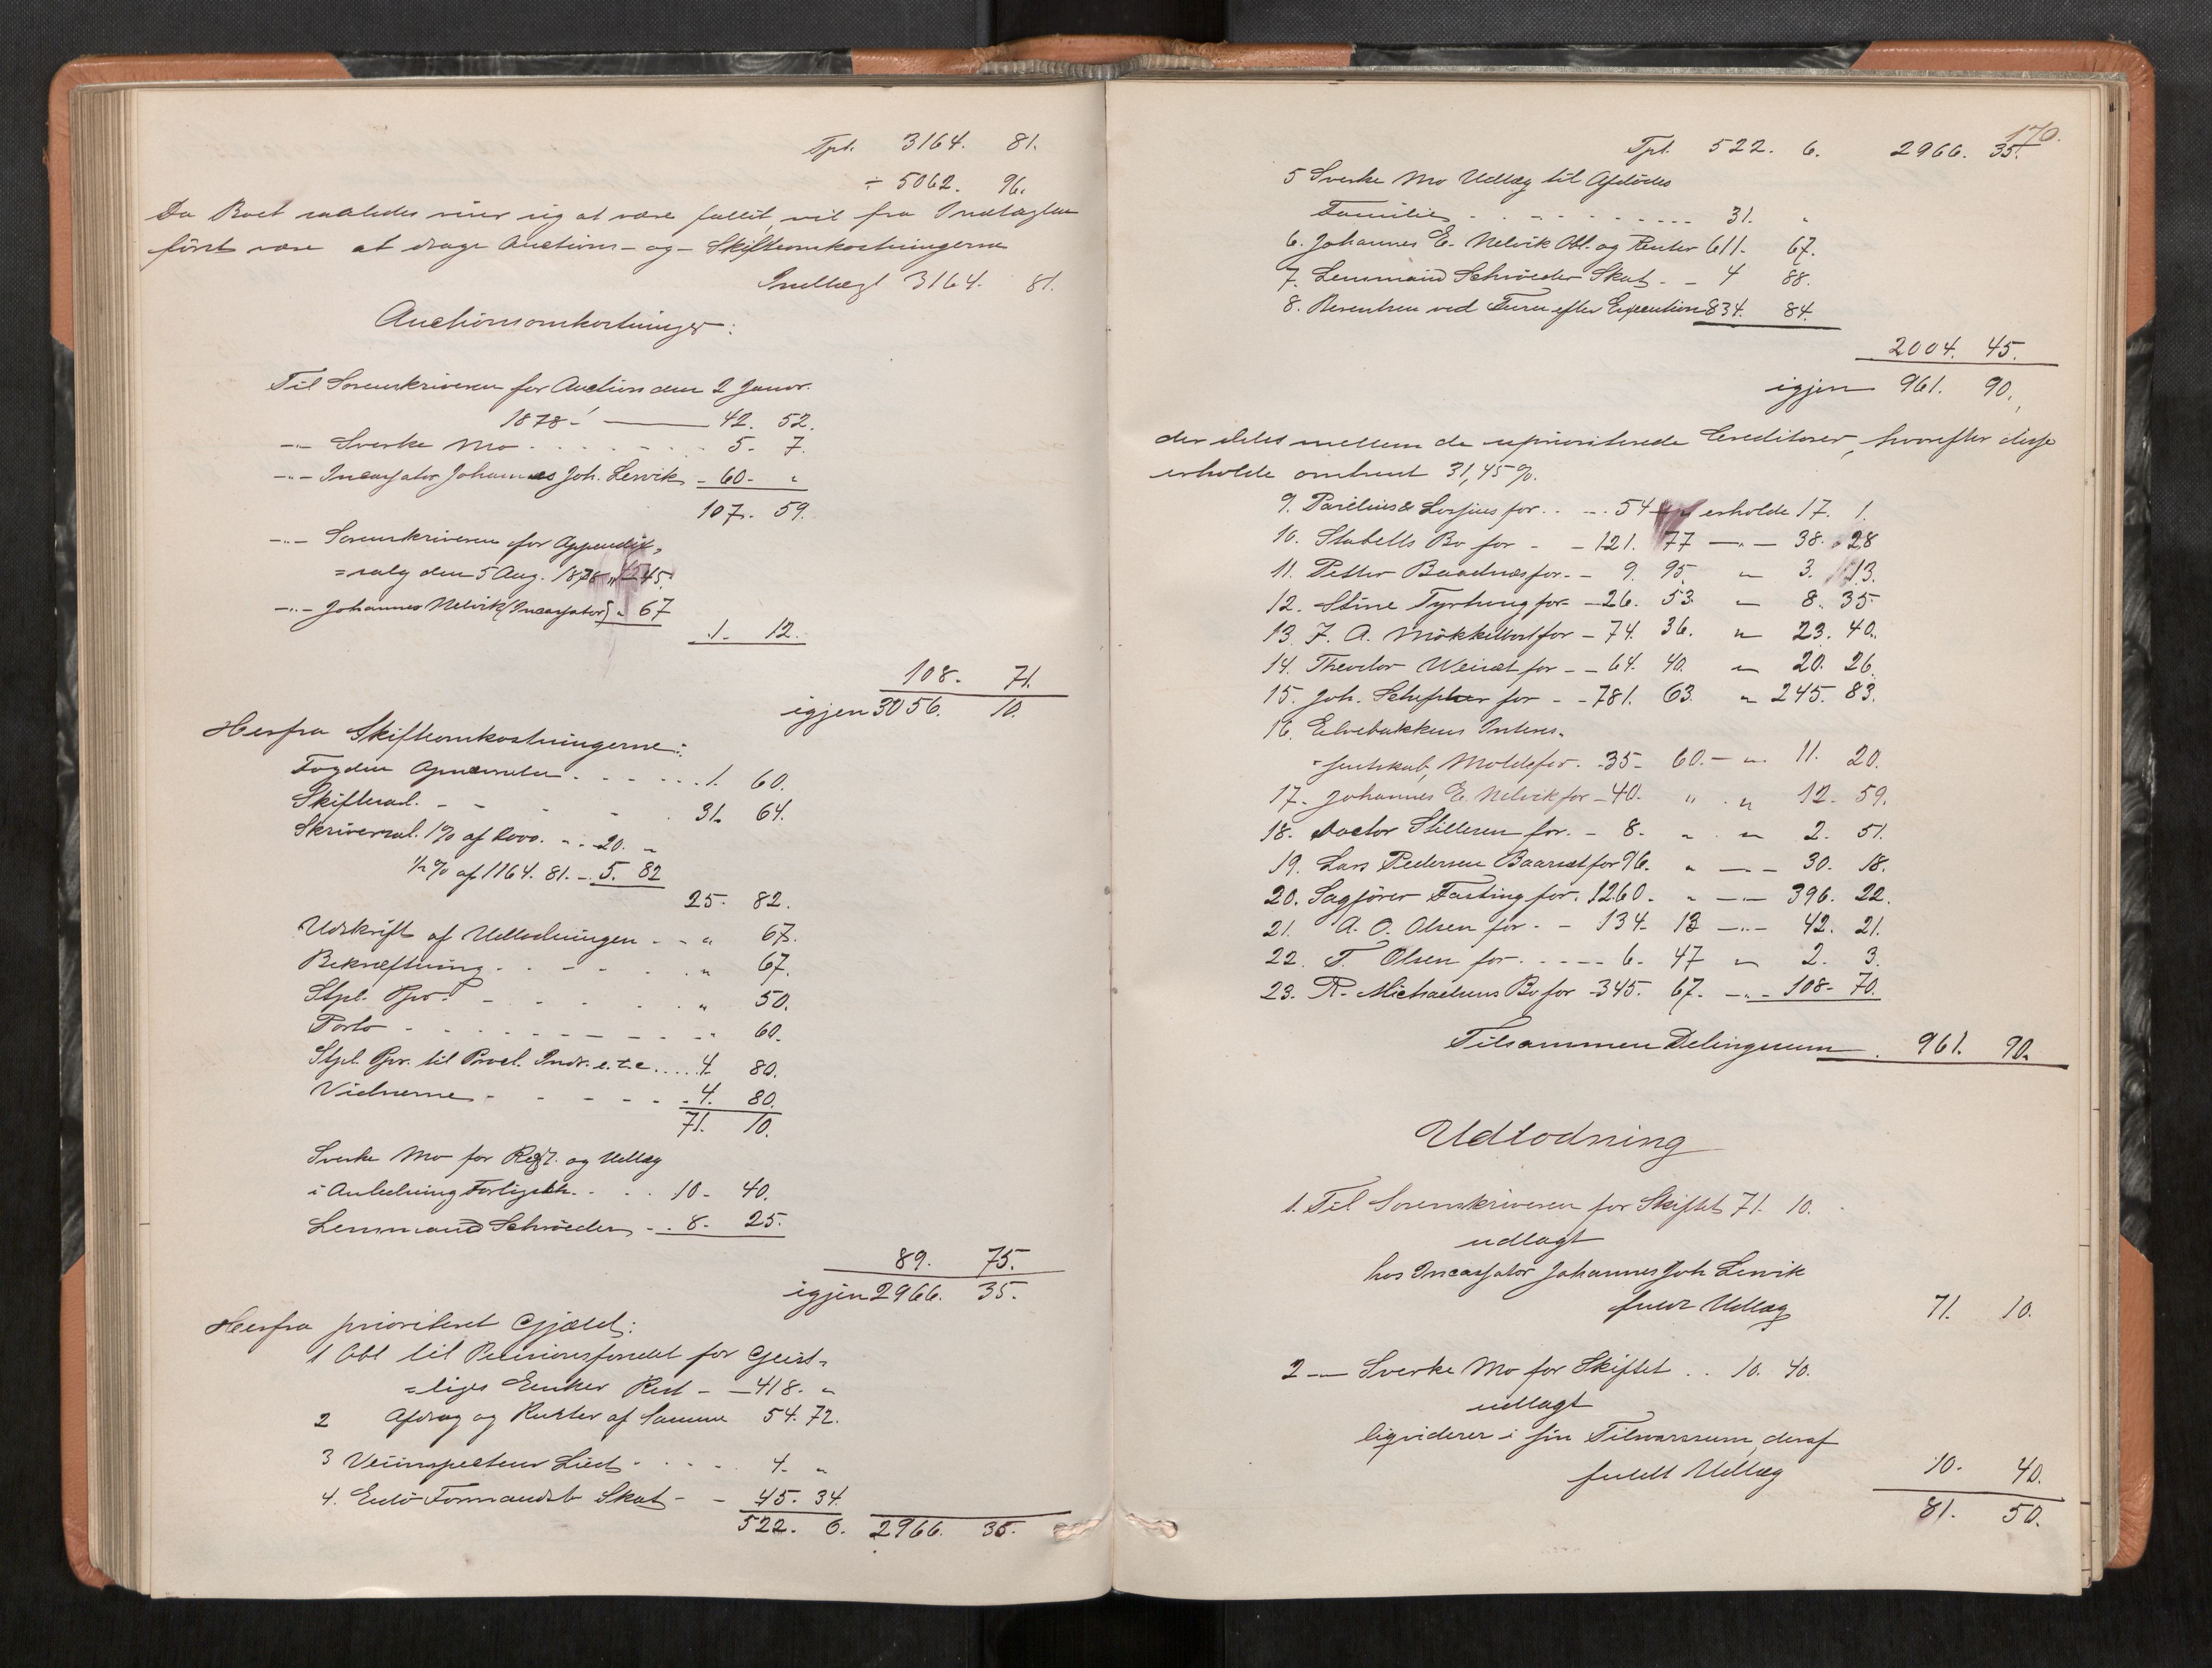 Tpt. 3164. 81.
÷ 5062. 96.
Da Boet saaledes viser sig at være fallit, vil fra Indtægten
först være at drage Auctions- og Skifteomkostningerne
Indtægt 3164. 81.
Auctionsomkostninger:
Til Sorenskriveren for Auction den 2 Januar.
1878. — 42. 52.
-"- Sverke Mo . . . . . 5. 7.
-"- Incassator Johannes Joh. Lervik - 60. "
107. 59.
-"- Sorenskriveren for Appendix
=salg den 5 Aug. 1878 " 45.
-"- Johannes Nelvik (Incassator) " 67
1. 12.
108. 71.
igjen 3056. 10.
Herfra Skifteomkostningerne:
Fogden . . . . . 1. 60.
Skiftesal. - - - - 31. 64.
Skriversal. 1% af 2000. - . 20. "
½% af 1164. 81. - 5. 82
25. 82.
Udskrift af Udlodningen - - " 67.
Bekræftning . . - - . " 67.
Stpl. Ppr. - - - - " 50.
Porto - . . - - - - " 60.
Stpl. Ppr. til Procl. Indr. e.t.c. . . . 4. 80.
Vidnerne - - - - - 4. 80.
71. 10.
Sverke Mo for Regt. og Udlæg
i Anledning . . . 10. 40.
Lensmand Schröeder - - 8. 25.
89. 75.
igjen 2966. 35.
Herfra prioriteret Gjæld:
1 Obl til Pensionsfondet for Geist-
=liges Enker Rest - - 418. "
2 Afdrag og Renter af Samme 54. 72.
3 Veiinspecteur - . . - 4. "
4. Formandsk Skat - - 45. 34.
522. 6. 2966. 35.
170.
Tpt. 522. 6. 2966. 35.
5 Sverke Mo Udlæg til Afdödes
Familie . . - - - - - 31. "
6. Johannes E. Nelvik Obl. og Renter 611. 67.
7. Lensmand Schröeder Skat - - 4 88.
8. Berentsen ved efter Execution 834. 84.
2004. 45.
igjen 961. 90.
der deles mellem de uprioriterede Creditorer, hvorefter disse
erholde omtrent 31,45%.
9. Parelius & Lossius for . . - . 54 erholde 17. 1.
10. Stabells Bo for - - 121. 77 -"- 38. 28
11. Petter for - - 9. 95. " 3. 13.
12. Stine for - 26. 53. " 8. 35.
13. F. A. for - 74. 36. " 23. 40.
14. Theodor for - - 64. 40. " 20. 26.
15. Joh. for - - 781. 63. " 245. 83.
16. Elvebakkens Interes-
-sentskab, Molde for . - 35. 60. - " 11. 20.
17. Johannes E. Nelvik for - 40. " . " 12. 59.
18. Doctor for. - 8. " . " 2. 51.
19. Lars Pedersen for 96. " -"- 30. 18.
20. Sagförer Fasting for. 1260. " -"- 396. 22.
21. A. O. Olsen for - - 134. 13 -"- 42. 21.
22. T. Olsen for . - - - 6. 47 " 2. 3.
23. R. Michaelsens Bo for - 345. 67. -"- 108. 70.
Tilsammen Delingssum . 961. 90.
Udlodning
1. Til Sorenskriveren for Skiftet 71. 10.
udlagt
hos Incassator Johannes Joh Lervik
fuldt Udlæg 71. 10.
2 -"- Sverke Mo for Skiftet . . 10. 40.
udlagt
liqviderer i sin Tilsvarssum, deraf
fuldt Udlæg 10. 40.
81. 50.